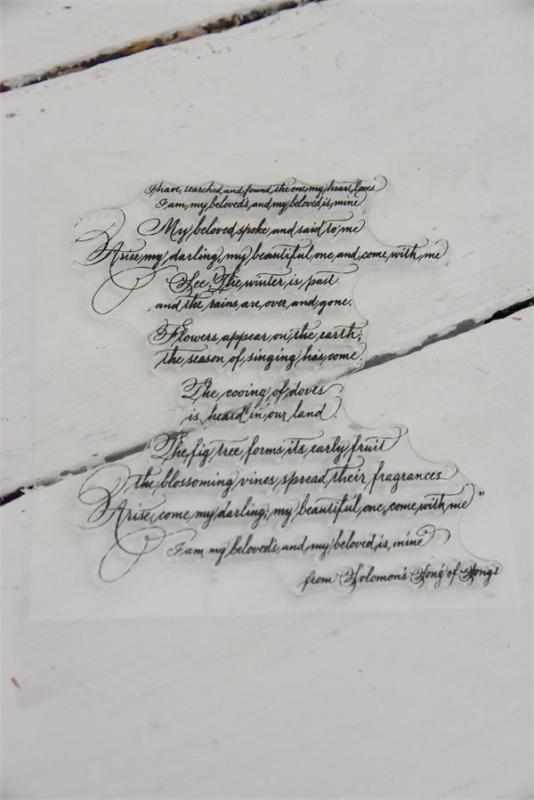 I have searched and found the one my heart loves
I am my beloved's and my beloved is mine
My beloved spoke and said to me
Arise my darling, my beautiful one, and come with me
See, The winter is past
and the rains are over and gone.
Flowers appear on the earth;
the season of singing has come.
The cooing of doves
is heard in our land.
The fig tree forms its early fruit
the blossoming vines spread their fragrances
Arise, come my darling; my beautiful one, come with me"
I am my beloved's and my beloved is mine
from Solomon's Song of Songs